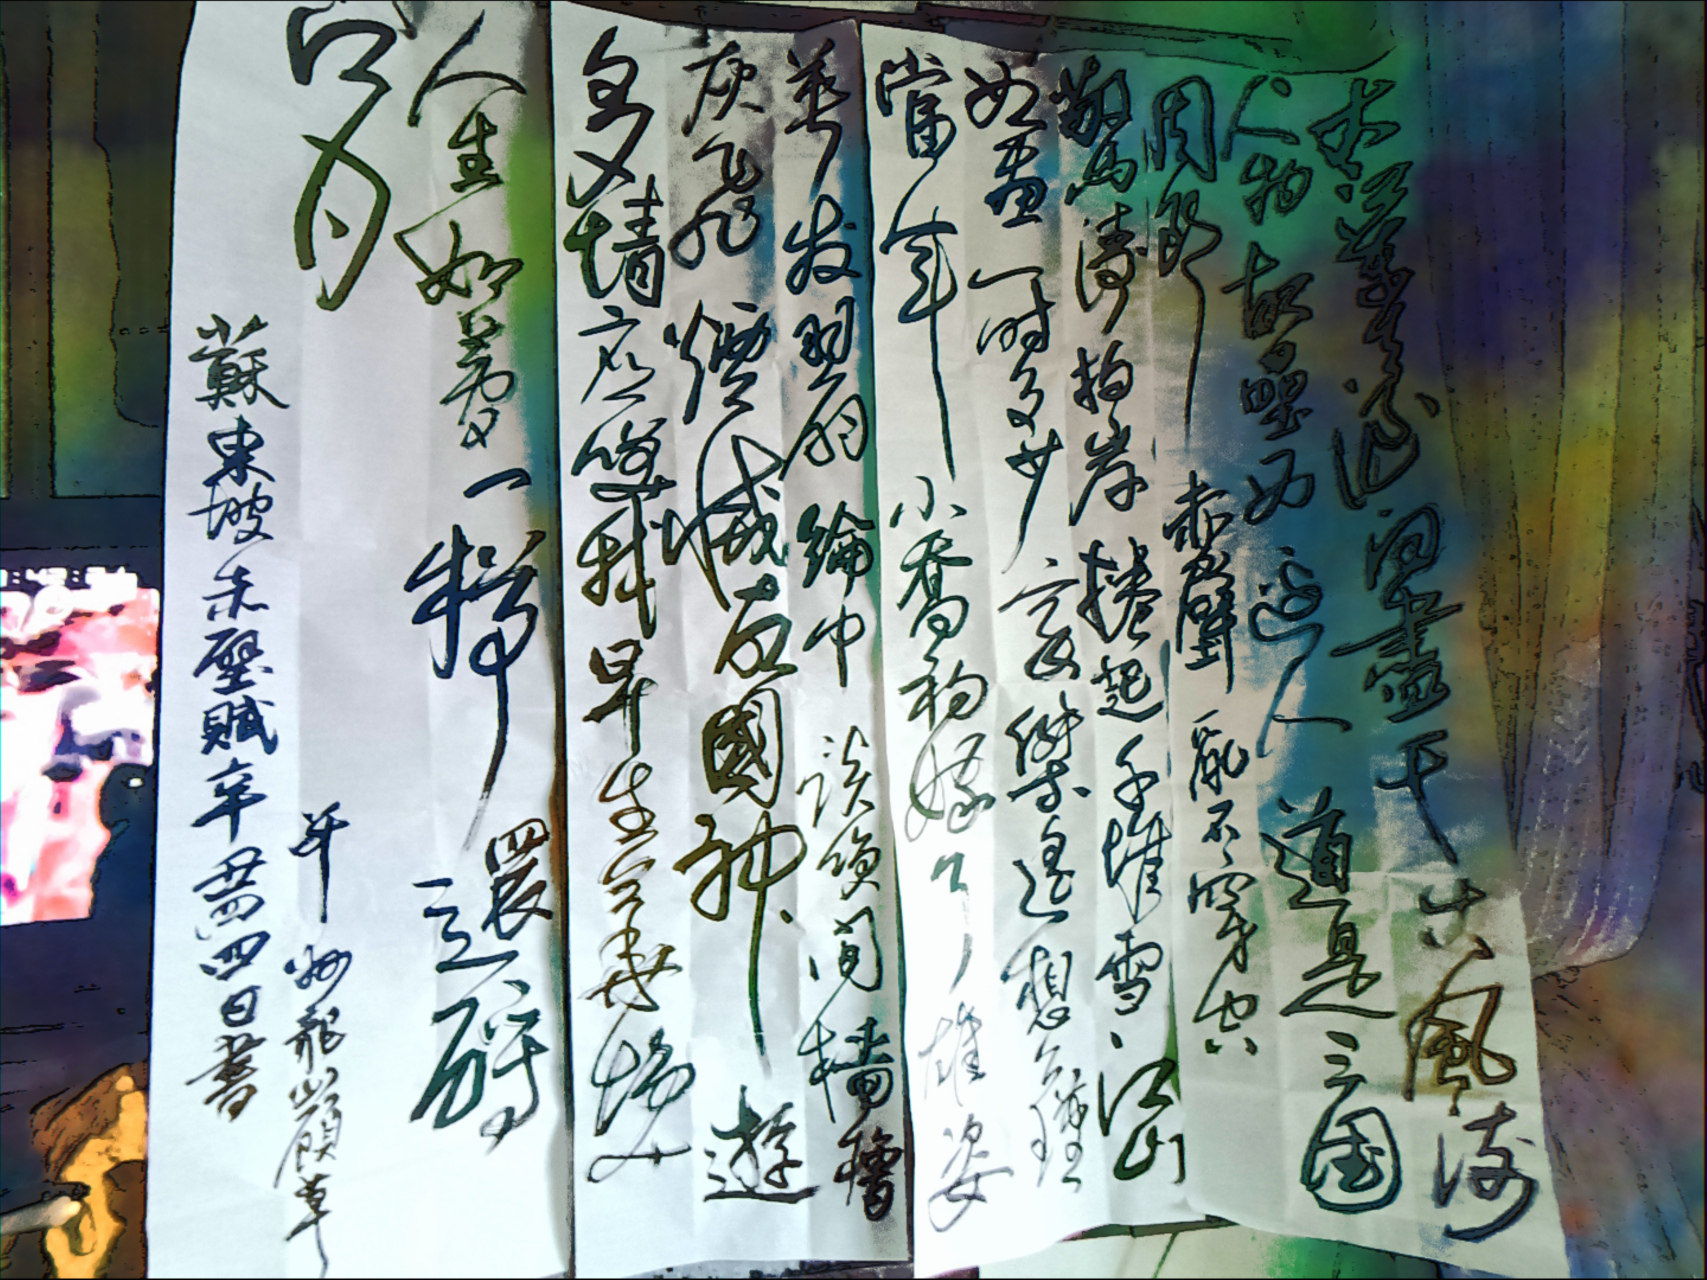 大江東去浪淘盡千古風流
人物故壘西邊人道是三国
周郎赤壁亂石穿空
驚濤拍岸捲起千堆雪江山
如畫一時多少豪傑遙想公瑾
當年小喬初嫁了雄姿
英发羽扇綸巾談笑间檣櫓
灰飞煙滅故國神遊
多情應笑我早生華髮
人生如夢一樽還酹
江月
草
蘇東坡赤壁賦辛四日書